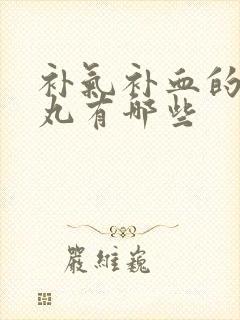 补氣补血的
丸有哪些
嚴維巍